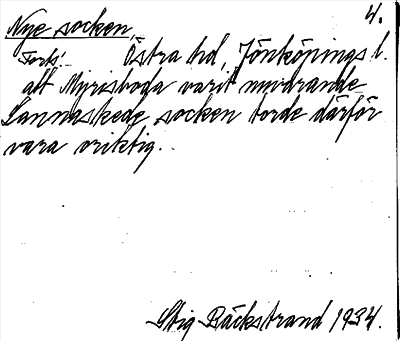 Nye socken, 4.
Forts. Östra hd, Jönköpings l.
att Myrisboda varit nuvarande
Lannaskede socken torde därför
vara oriktig.
Stig Bäckstrand 1934.